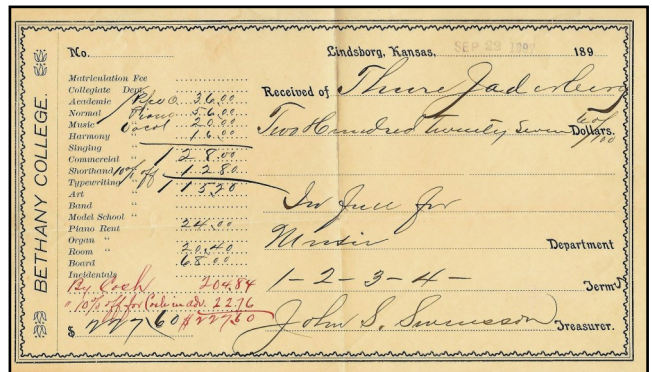 BETHANY COLLEGE.
No.
Matriculation Fee
Collegiate Dept.
Academic " 36.00
Normal Piano 56.00
Music Vocal 20.00
Harmony 16.00
Singing "
Commercial 128.00
Shorthand 10% off 12.80
Typewriting " 115.20
Art
Band "
Model School "
Piano Rent 24.00
Organ "
Room " 20.40
Board 68.00
Incidentals
By Cash 204.84
" 10% off for Cash in adv. 22.76
$ 227.60 $227.60
Lindsborg, Kansas, SEP 22 189
Received of Thure Jaderberg
Two Hundred twenty Seven 60/100 Dollars.
In full for
Music Department
1-2-3-4- Terms
John S. Swensson Treasurer.